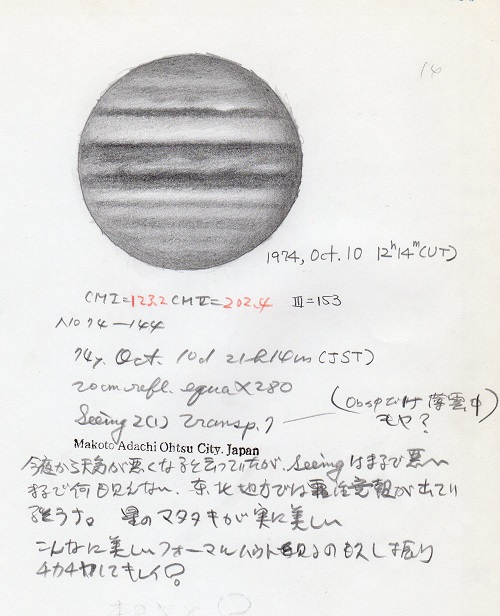 16
1974, Oct. 10 12h14m(UT)
CMI=123.2 CMII=202.4 III=153
No 74-144
74y. Oct. 10d 21h14m (JST)
20cm refl. equa X280
Seeing 2(1) Transp. 7
(Obsでは薄雲中モヤ?)
Makoto Adachi Ohtsu City. Japan
今夜から天気が悪くなると言っていたが、Seeingはまるで悪い
まるで何も見えない. 東北地方では霜注意報が出てい
るそうな。星のマタタキが実に美しい
こんなに美しいフォーマルハウトを見るのも久し振り
チカチカしてキレイ。